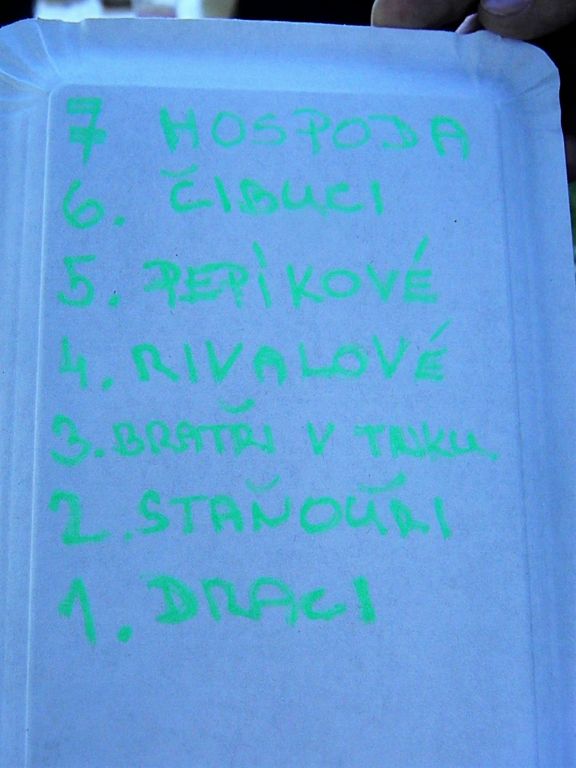 7 HOSPODA
6. ČIBUCI
5. PEPÍKOVÉ
4. RIVALOVÉ
3. BRATŘI V TRIKU
2. STAŇOUŘI
1. DRACI